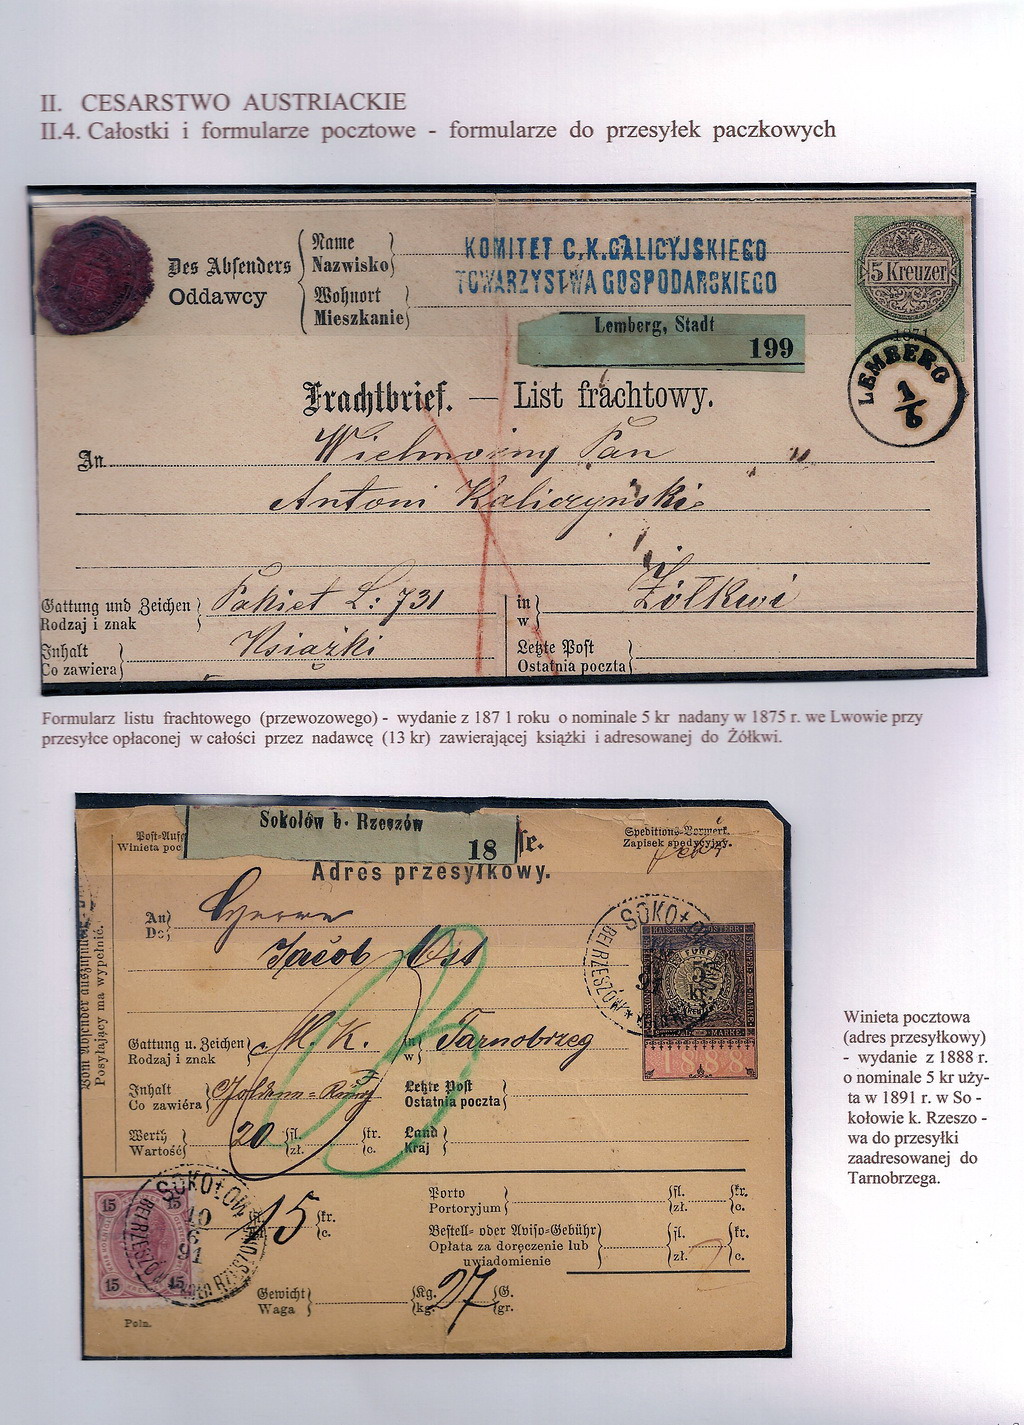 II. CESARSTWO AUSTRIACKIE
II.4. Całostki i formularze pocztowe - formularze do przesyłek paczkowych
Des Absenders
Oddawcy
Name
Nazwisko
Wohnort
Mieszkanie
KOMITET C.K.GALICYJSKIEGO
TOWARZYSTWA GOSPODARSKIEGO
5 Kreuzer
1871
Lemberg, Stadt
199
LEMBERG
1/6
Frachtbrief. — List frachtowy.
An Wielmożny Pan
Antoni Kaliczyński
Gattung und Zeichen
Rodzaj i znak
Pakiet L: 731
in
w
Żółkwi
Inhalt
Co zawiera
Książki
Letzte Post
Ostatnia poczta
Formularz listu frachtowego (przewozowego) - wydanie z 187 1 roku o nominale 5 kr nadany w 1875 r. we Lwowie przy
przesyłce opłaconej w całości przez nadawcę (13 kr) zawierającej książki i adresowanej do Żółkwi.
Post-Aufg
Winieta poc
Sokolów b. Rzeszów
18
se.
Speditions-Vormerk.
Zapisek spedycyjny.
Adres przesyłkowy.
Vom Absender auszufüllen.
Posyłający ma wypełnić.
An
Do
Jacob Ost
SOKOŁÓW
BEI RZESZÓW
KAIS. KÖN. ÖSTERR.
FÜNF
5
kr
MARKE
1888
Gattung u. Zeichen
Rodzaj i znak
M. K.
in
w
Tarnobrzeg
Inhalt
Co zawiéra
Letzte Post
Ostatnia poczta
Werth
Wartość
20
fl.
zł.
kr.
c.
Land
Kraj
15
15
15
15
SOKOŁÓW
10
91
BEI RZESZÓW
KOŁO RZESZOWA
15
kr.
c.
Porto
Portoryjum
fl.
zł.
kr.
c.
Bestell- oder Aviso-Gebühr
Opłata za doręczenie lub
uwiadomienie
fl.
zł.
kr.
c.
Gewicht
Waga
Kg.
kg.
27
G.
gr.
Poln.
Winieta pocztowa
(adres przesyłkowy)
- wydanie z 1888 r.
o nominale 5 kr uży-
ta w 1891 r. w So -
kołowie k. Rzeszo -
wa do przesyłki
zaadresowanej do
Tarnobrzega.